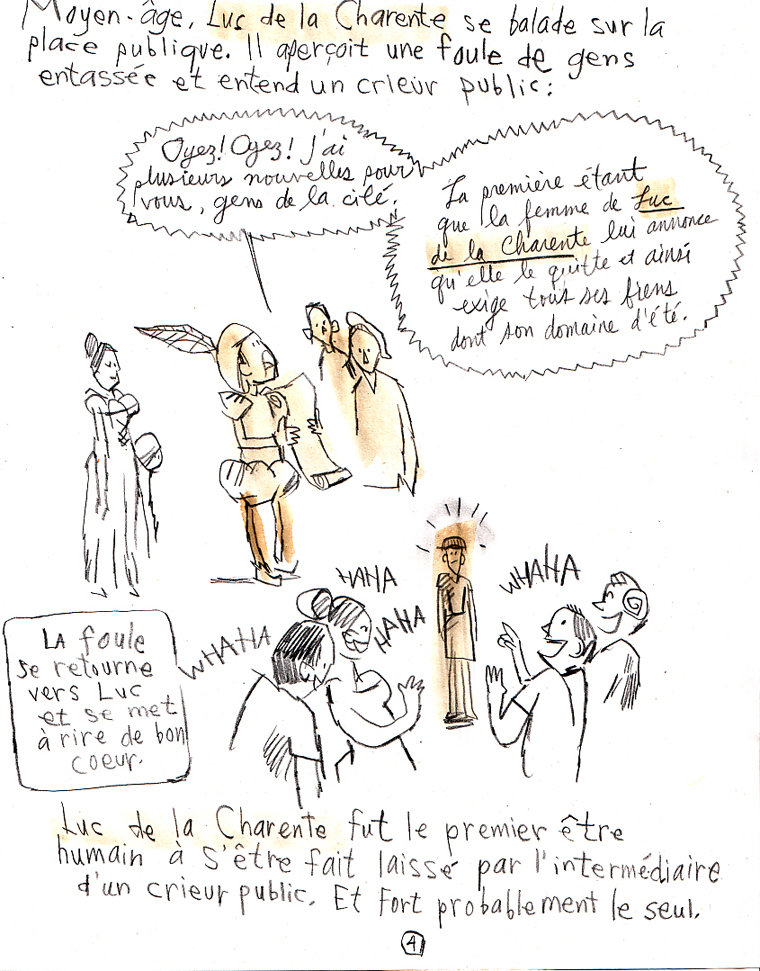 Moyen-âge, Luc de la Charente se balade sur la
place publique. Il aperçoit une foule de gens
entassée et entend un crieur public:
Oyez! Oyez! J'ai
plusieurs nouvelles pour
vous, gens de la cité.
La première étant
que la femme de Luc
de la Charente lui annonce
qu'elle le quitte et ainsi
exige tous ses biens
dont son domaine d'été.
HAHA
WHAHA
HAHA
WHAHA
LA foule
se retourne
vers Luc
et se met
à rire de bon
coeur.
Luc de la Charente fut le premier être
humain à s'être fait laissé par l'intermédiaire
d'un crieur public. Et fort probablement le seul.
4